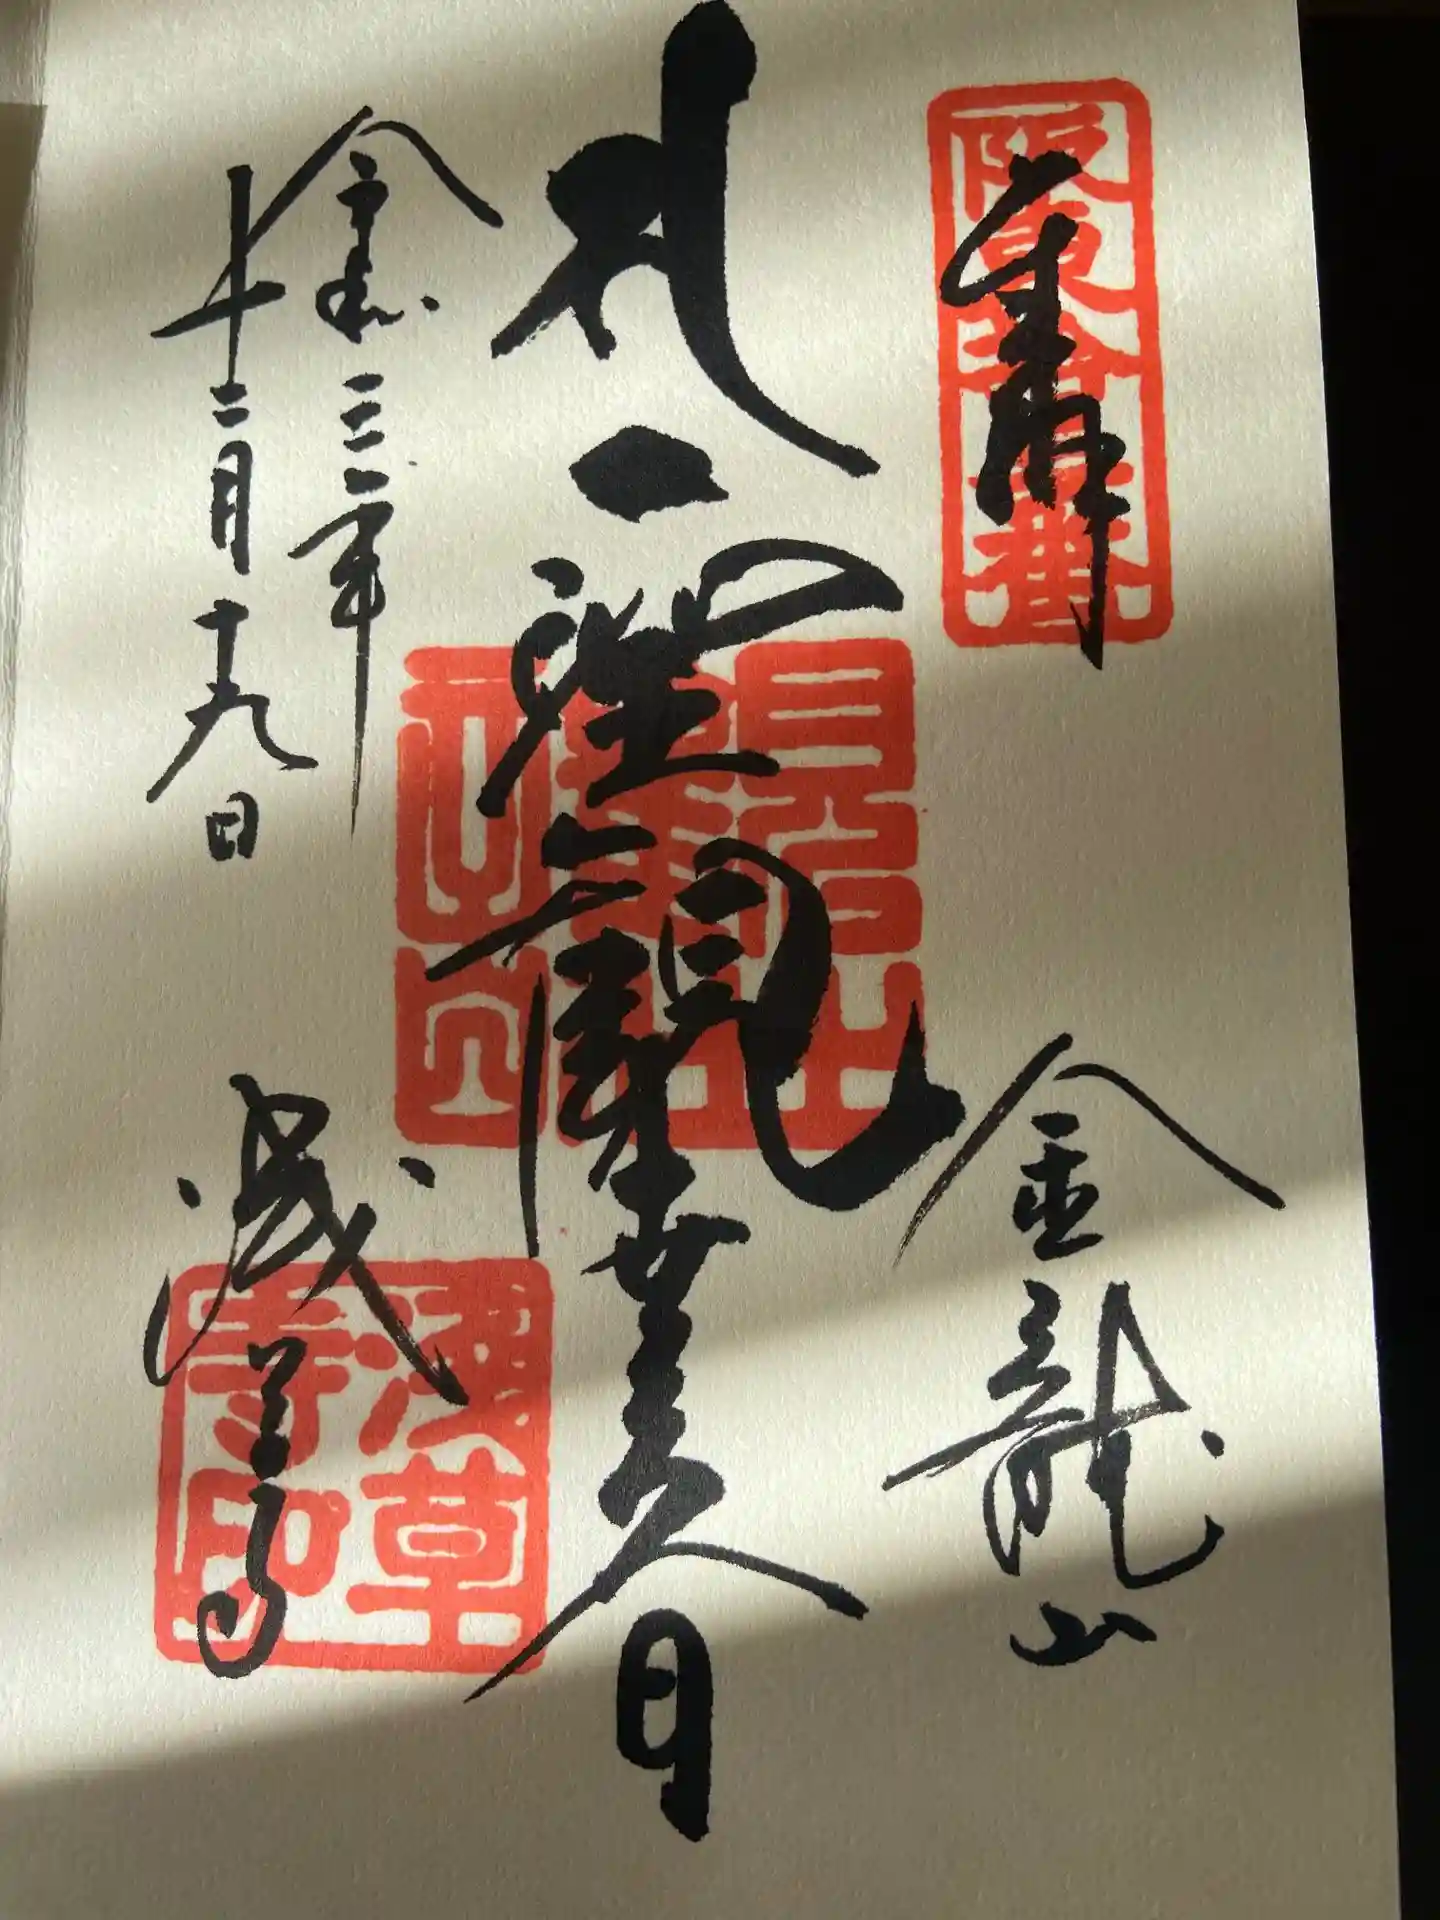 奉拝
阪東拾三番
金龍山
聖觀世音
令和三年
十二月十九日
浅草寺
浅草寺印